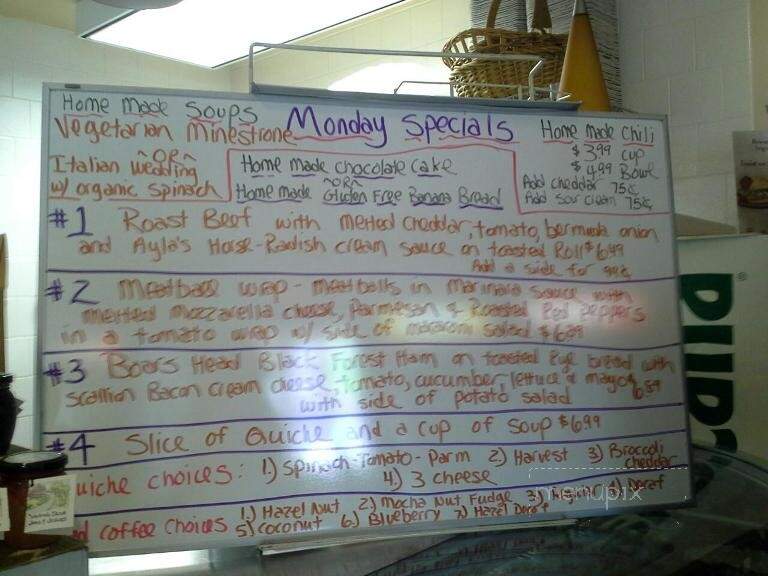 Home made Soups
Vegetarian Minestrone
~OR~
Italian wedding
w/ organic spinach
Monday Specials
Home made chocolate Cake
~OR~
Home made Gluten Free Banana Bread
Home made Chili
$3.99 cup
$4.99 Bowl
Add cheddar 75¢
Add sour cream 75¢
#1 Roast Beef with melted cheddar, tomato, bermuda onion
and Ayla's Horse-Radish cream sauce on toasted Roll $6.49
Add a side for 99¢
#2 Meatball wrap - meatballs in Marinara Sauce with
melted mozzarella cheese, Parmesan & Roasted Red Peppers
in a tomato wrap w/ side of macaroni salad $6.89
#3 Boars Head Black Forest Ham on toasted Rye bread with
Scallion Bacon cream cheese, tomato, cucumber, lettuce & mayo
with side of potato salad
#4 Slice of Quiche and a cup of Soup $6.99
uiche choices: 1.) Spinach-Tomato-Parm 2) Harvest 3) Broccoli
cheddar
4.) 3 cheese
d coffee choices 1.) Hazel Nut 2.) Mocha Nut Fudge 3.) Regular 4.) Decaf
5) Coconut 6.) Blueberry 7.) Hazel Decaf
menupix